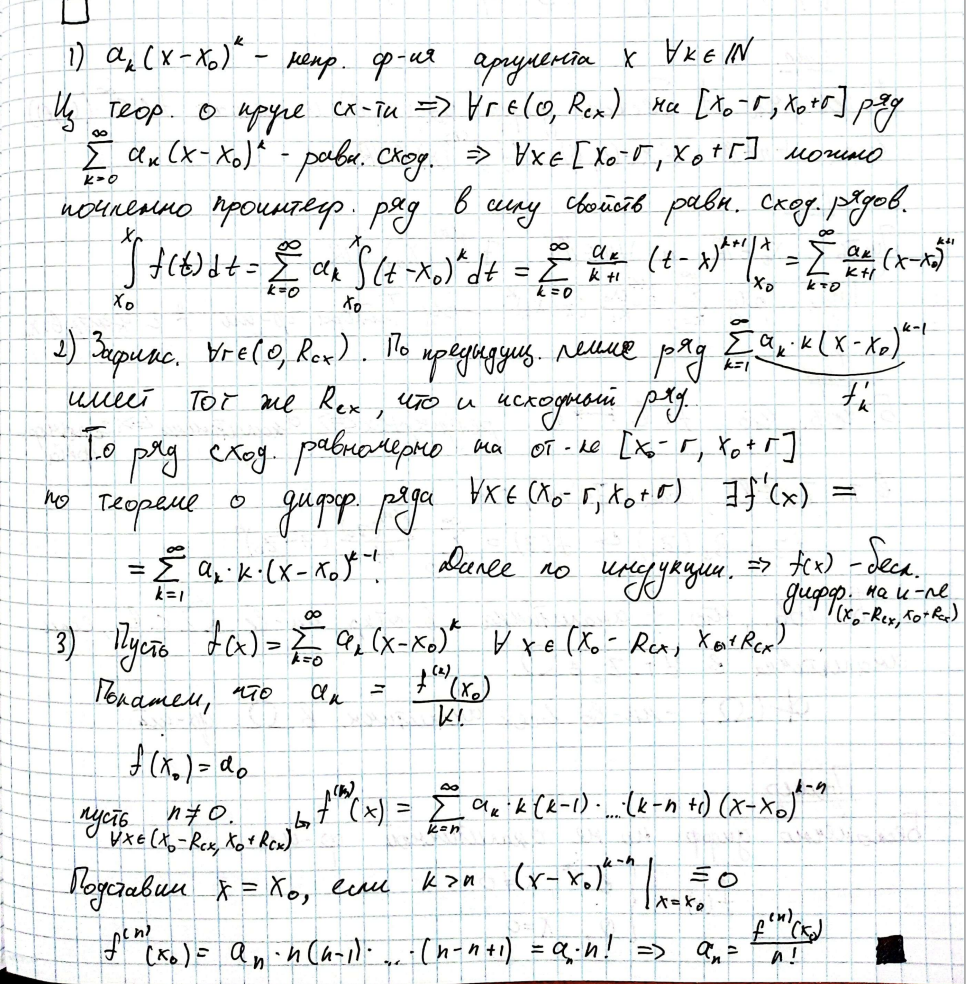 1) a_k (x-x_0)^k - непр. ф-ия аргумента x ∀k∈ℕ
Из теор. о круге сх-ти => ∀r∈(0, R_сх) на [x_0-r, x_0+r] ряд
∑_{k=0}^{∞} a_k (x-x_0)^k - равн. сход. => ∀x∈[x_0-r, x_0+r] можно
почленно проинтегр. ряд в силу свойств равн. сход. рядов.
∫_{x_0}^{x} f(t)dt = ∑_{k=0}^{∞} a_k ∫_{x_0}^{x} (t-x_0)^k dt = ∑_{k=0}^{∞} a_k/(k+1) (t-x)^{k+1} |_{x_0}^{x} = ∑_{k=0}^{∞} a_k/(k+1) (x-x_0)^{k+1}
2) Зафикс. ∀r∈(0, R_сх). По предыдущ. лемме ряд ∑_{k=1}^{∞} a_k·k(x-x_0)^{k-1}
имеет тот же R_сх, что и исходный ряд. f'_k
То ряд сход. равномерно на от-ке [x_0-r, x_0+r]
по теореме о дифф. ряда ∀x∈(x_0-r, x_0+r) ∃f'(x) =
= ∑_{k=1}^{∞} a_k·k·(x-x_0)^{k-1}. Далее по индукции. => f(x) - беск.
дифф. на и-ле
(x_0-R_сх, x_0+R_сх)
3) Пусть f(x) = ∑_{k=0}^{∞} a_k (x-x_0)^k ∀ x∈(x_0-R_сх, x_0+R_сх)
Покажем, что a_k = f^{(k)}(x_0)/k!
f(x_0) = a_0
пусть n≠0. ↳ f^{(n)}(x) = ∑_{k=n}^{∞} a_k·k(k-1)·...(k-n+1)(x-x_0)^{k-n}
∀x∈(x_0-R_сх, x_0+R_сх)
Подставим x = x_0, если k>n (x-x_0)^{k-n} |_{x=x_0} ≡ 0
f^{(n)}(x_0) = a_n·n(n-1)·...·(n-n+1) = a_n·n! => a_n = f^{(n)}(x_0)/n! ■